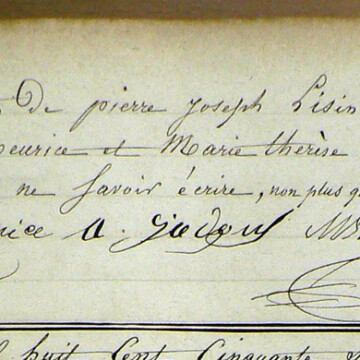 de pierre joseph Lisin
eurice et Marie thérèse
ne Savoir écrire, non plus q
ice A. Jadoul
huit Cent Cinquante